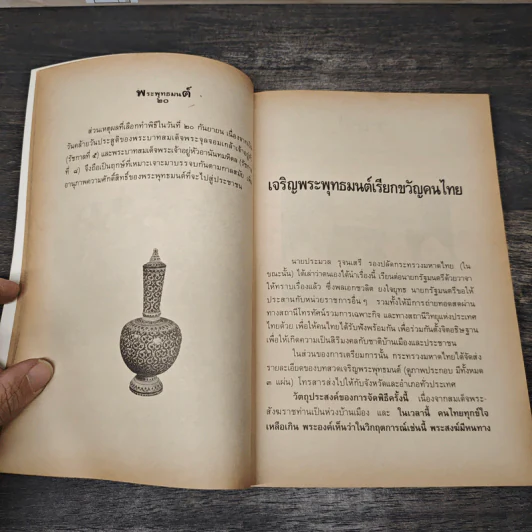 พระพุทธมนต์
๒๐
ส่วนเหตุผลที่เลือกทำพิธีในวันที่ ๒๐ กันยายน เนื่องจาก
วันคล้ายวันประสูติของพระบาทสมเด็จพระจุลจอมเกล้าเจ้าอยู่หัว
(รัชกาลที่ ๕) และพระบาทสมเด็จพระเจ้าอยู่หัวอานันทมหิดล
ที่ ๘) จึงถือเป็นฤกษ์ที่เหมาะเจาะมาบรรจบกันตามกาลสมัย
อานุภาพความศักดิ์สิทธิ์ของพระพุทธมนต์ที่จะไปสู่ประชาชน
เจริญพระพุทธมนต์เรียกขวัญคนไทย
นายประมวล รุจนเสรี รองปลัดกระทรวงมหาดไทย (ใน
ขณะนั้น) ได้เล่าว่าตนเองได้นำเรื่องนี้ เรียนต่อนายกรัฐมนตรีด้วยวาจา
ให้ทราบเรื่องแล้ว ซึ่งพลเอกชวลิต ยงใจยุทธ นายกรัฐมนตรีขอให้
ประสานกับหน่วยราชการอื่นๆ รวมทั้งให้มีการถ่ายทอดสดผ่าน
ทางสถานีโทรทัศน์รวมการเฉพาะกิจ และทางสถานีวิทยุแห่งประเทศ
ไทยด้วย เพื่อให้คนไทยได้รับฟังพร้อมกัน เพื่อร่วมกันตั้งจิตอธิษฐาน
เพื่อให้เกิดความเป็นสิริมงคลกับชาติบ้านเมืองและประชาชน
ในส่วนของการเตรียมการนั้น กระทรวงมหาดไทยได้จัดส่ง
รายละเอียดของบทสวดเจริญพระพุทธมนต์ (ดูภาพประกอบ มีทั้งหมด
๓ แผ่น) โทรสารส่งไปให้กับจังหวัดและอำเภอทั่วประเทศ
วัตถุประสงค์ของการจัดพิธีครั้งนี้ เนื่องจากสมเด็จพระ-
สังฆราชท่านเป็นห่วงบ้านเมือง และ ในเวลานี้ คนไทยทุกข์ใจ
เหลือเกิน พระองค์เห็นว่าในวิกฤตการณ์เช่นนี้ พระสงฆ์มีหนทาง